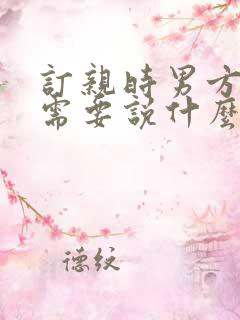 訂親時男方
需要說什麼
德纹